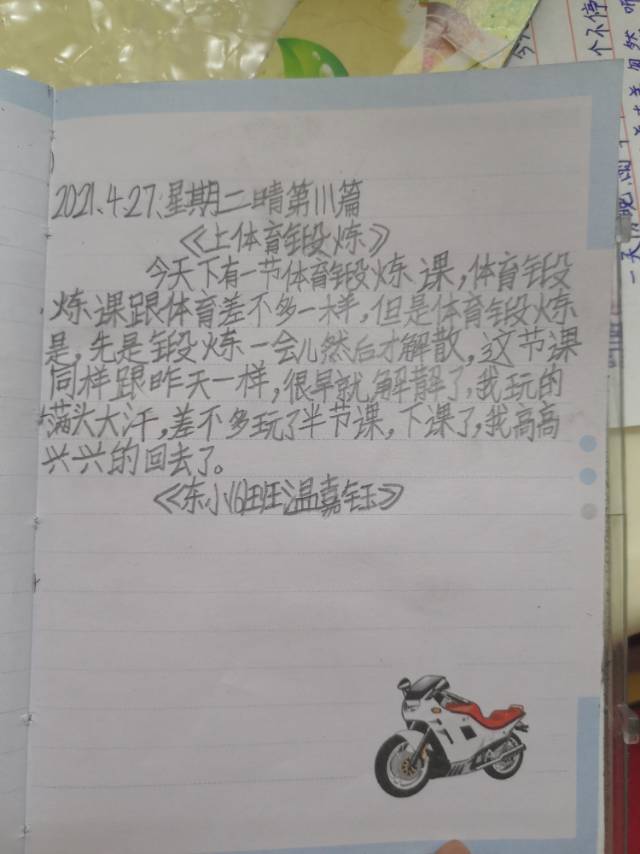 2021.4.27.星期二晴第111篇
《上体育锻炼》
今天下有一节体育锻炼课,体育锻
炼课跟体育差不多一样,但是体育锻炼
是,先是锻炼一会儿然后才解散,这节课
同样跟昨天一样,很早就解散了,我玩的
满头大汗,差不多玩了半节课,下课了,我高高
兴兴的回去了。
《东小(6)班温嘉钰》
个不停